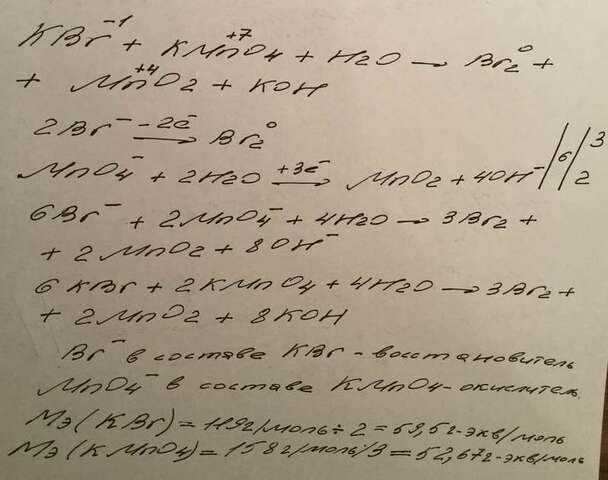 KBr⁻¹ + KMn⁺⁷O4 + H2O → Br2⁰ +
+ Mn⁺⁴O2 + KOH
2Br⁻ –2ē → Br2⁰
MnO4⁻ + 2H2O +3ē → MnO2 + 4OH⁻ | 6 | 3 2
6Br⁻ + 2MnO4⁻ + 4H2O → 3Br2 +
+ 2MnO2 + 8OH⁻
6KBr + 2KMnO4 + 4H2O → 3Br2 +
+ 2MnO2 + 8KOH
Br⁻ в составе KBr - восстановитель
MnO4⁻ в составе KMnO4 - окислитель
Mэ(KBr) = 119г/моль ÷ 2 = 59,5г-экв/моль
Mэ(KMnO4) = 158г/моль/3 = 52,67г-экв/моль